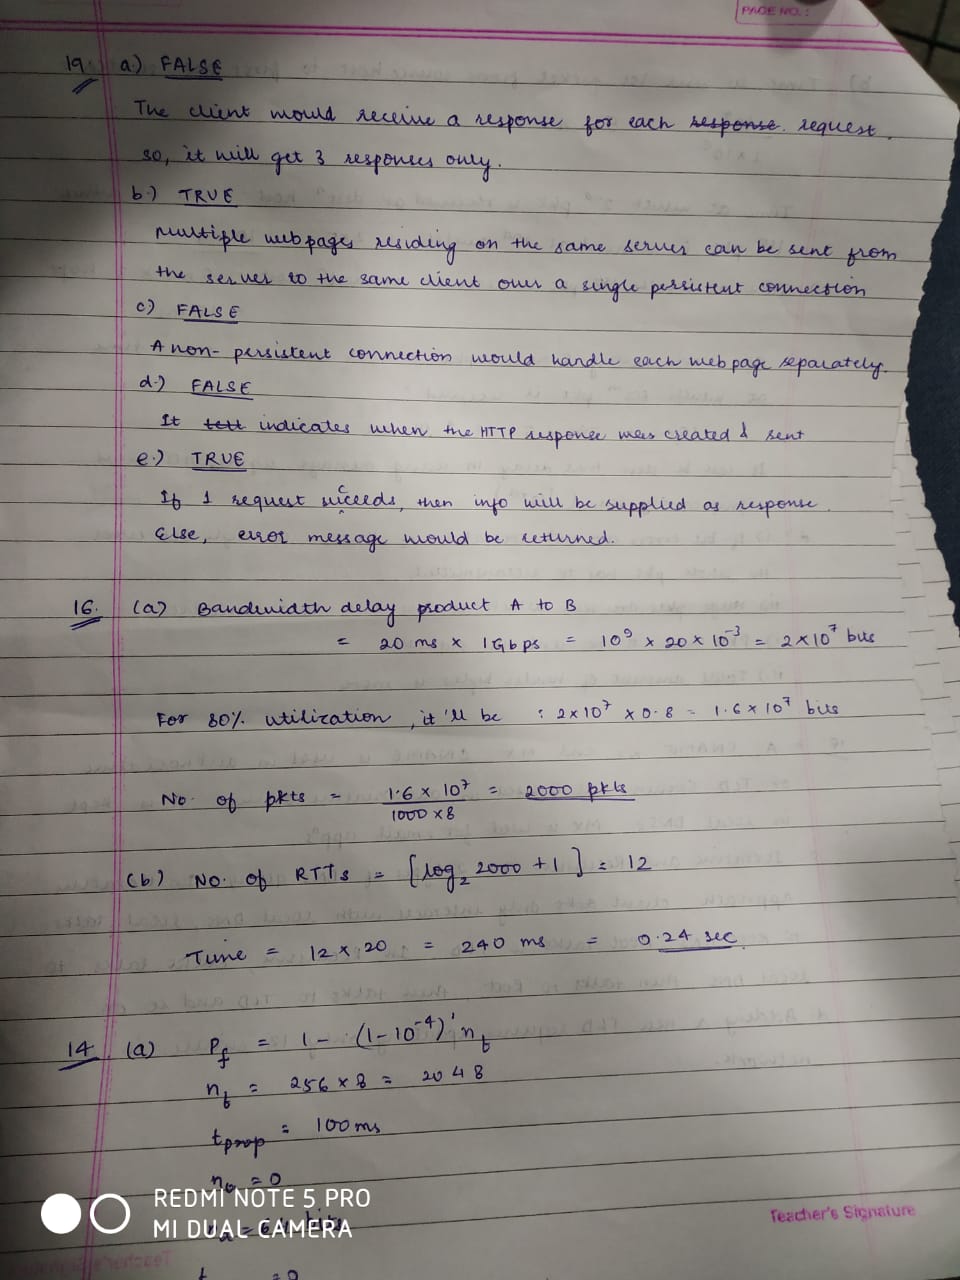 PAGE NO.:
19. a.) FALSE
The client would receive a response for each response. request.
so, it will get 3 responses only.
b.) TRUE
Multiple webpages residing on the same server can be sent from
the server to the same client over a single persistent connection
c) FALSE
A non-persistent connection would handle each webpage separately.
d.) FALSE
It indicates when the HTTP response was created & sent
e.) TRUE
If 1 request succeeds, then info will be supplied as response.
Else, error message would be returned.
16. (a) Bandwidth delay product A to B
= 20 ms × 1Gbps = 10⁹ × 20 × 10⁻³ = 2×10⁷ bits
For 80% utilization, it'll be : 2×10⁷ × 0.8 = 1.6 × 10⁷ bits
No. of pkts = 1.6 × 10⁷ / 1000 × 8 = 2000 pkts
(b) No. of RTTs = [log₂ 2000 + 1] = 12
Time = 12 × 20 = 240 ms = 0.24 sec.
14 (a) P_f = 1 - (1-10⁻⁴)' n_f
n_f = 256 × 8 = 2048
t_prop = 100ms
n_o = 0
= 64 bits
= 0
REDMI NOTE 5 PRO
MI DUAL CAMERA
Teacher's Signature